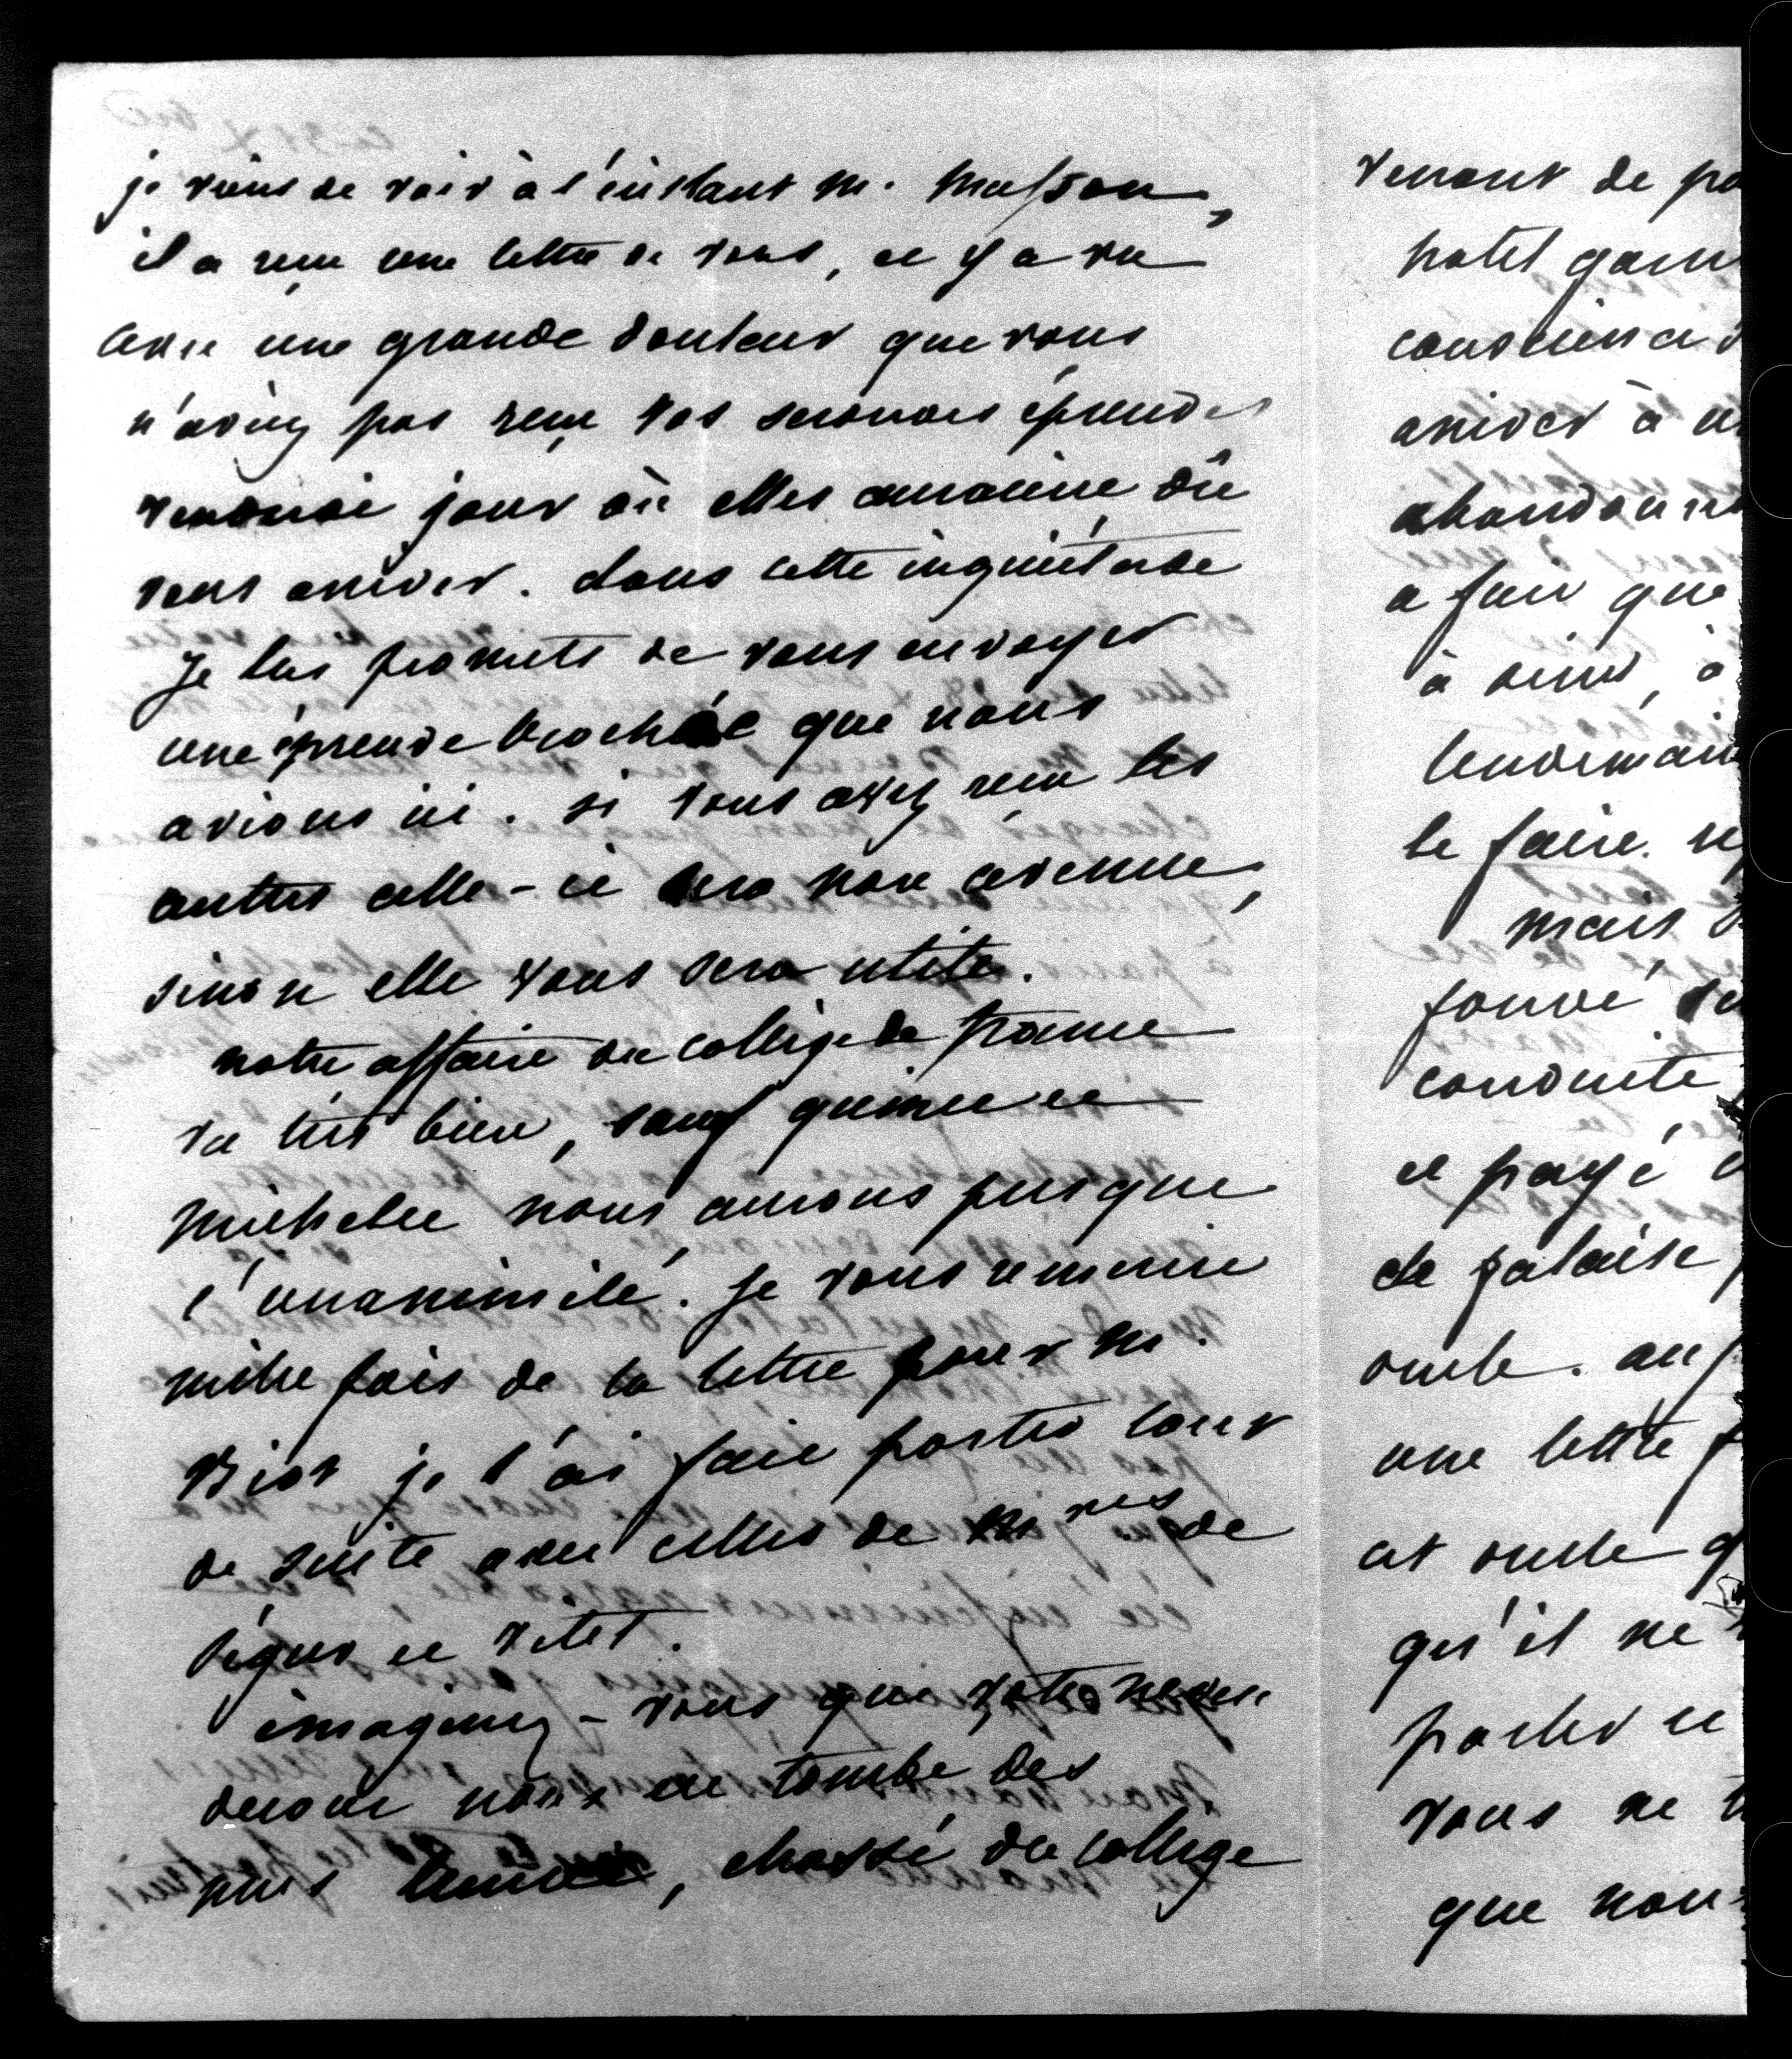 je viens de voir à l'instant M. Masson,
il a reçu une lettre de vous, et y a vu
avec une grande douleur que vous
n'aviez pas reçu vos secondes épreuves
vendredi jour où elles auraient dû
vous arriver. dans cette inquiétude
je lui promets de vous envoyer
une épreuve brochée que nous
avions ici. si vous avez reçu les
autres celle-ci sera non avenue,
sinon elle vous sera utile.
notre affaire du collège de france
va très bien, sauf quinet et
michelet nous aurons presque
l'unanimité. je vous remercie
mille fois de la lettre pour M.
Biot je l'ai fait porter tout
de suite avec celles de Mrs de
Ségur et Vitet.
imaginez-vous que votre neveu
nous en tombe des
nues , chassé du collège
venant de pa
hotel garn
conscience
arriver à
abandonn
a fait que
à diner, à
lendemain
le faire.
mais
conduite
et payé
de falaise
oncle. au
une lettre
cet oncle q
qu'il ne
parler et
vous ne
que nou